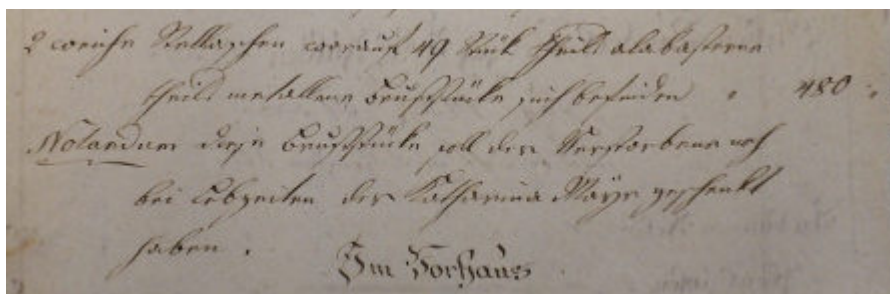 2 weiche Stellaschen worauf 49 Stük theils alabasterne
theils metallene Bruststücke sich befinden " 480 "
Notandum diese Bruststücke soll der Verstorbene noch
bei Lebzeiten der Katharina Mayr geschenkt
haben .
Im Vorhaus